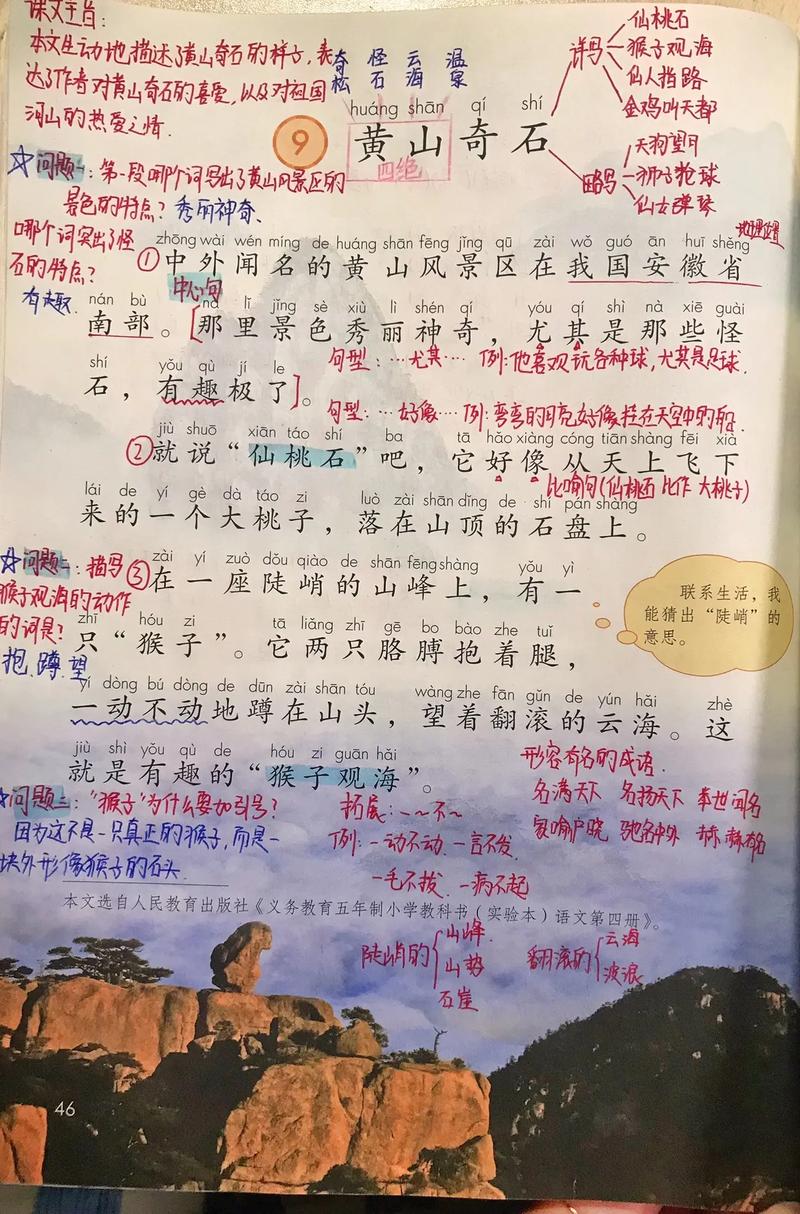 课文主旨:
本文生动地描述了黄山奇石的样子,表
达了作者对黄山奇石的喜爱,以及对祖国
河山的热爱之情.
奇 怪 云 温
松 石 海 泉
详写
仙桃石
猴子观海
仙人指路
金鸡叫天都
略写
天狗望月
狮子抢球
仙女弹琴
huáng shān qí shí
9 黄山奇石
四绝
☆问题一:第一段哪个词写出了黄山风景区的
景色的特点?秀丽神奇.
哪个词突出了怪
石的特点?
有趣.
地理位置
zhōng wài wén míng de huáng shān fēng jǐng qū zài wǒ guó ān huī shěng
①中外闻名的黄山风景区在我国安徽省
中心句
nán bù nà lǐ jǐng sè xiù lì shén qí yóu qí shì nà xiē guài
南部。[那里景色秀丽神奇,尤其是那些怪
句型:…尤其… 例:他喜欢玩各种球,尤其是足球.
shí yǒu qù jí le
石,有趣极了]。
句型:…好像… 例:弯弯的月亮好像挂在天空中的船.
jiù shuō xiān táo shí ba tā hǎo xiàng cóng tiān shàng fēi xià
②就说“仙桃石”吧,它好像从天上飞下
比喻句(仙桃石 比作 大桃子)
lái de yí gè dà táo zi luò zài shān dǐng de shí pán shàng
来的一个大桃子,落在山顶的石盘上。
☆问题二:描写
猴子观海的动作
的词是?
抱、蹲、望
zài yí zuò dǒu qiào de shān fēng shàng yǒu yì
③在一座陡峭的山峰上,有一
zhī hóu zi tā liǎng zhī gē bo bào zhe tuǐ
只“猴子”。它两只胳膊抱着腿,
联系生活,我
能猜出“陡峭”的
意思。
yí dòng bú dòng de dūn zài shān tóu wàng zhe fān gǔn de yún hǎi zhè
一动不动地蹲在山头,望着翻滚的云海。这
jiù shì yǒu qù de hóu zi guān hǎi
就是有趣的“猴子观海”。
☆问题三:“猴子”为什么要加引号?
因为这不是一只真正的猴子,而是一
块外形像猴子的石头.
拓展:一~不~
例:一动不动 一言不发
一毛不拔 一病不起
形容有名的成语.
名满天下 名扬天下 举世闻名
家喻户晓 驰名中外 赫赫有名
本文选自人民教育出版社《义务教育五年制小学教科书(实验本)语文第四册》。
陡峭的
山峰
山势
石崖
翻滚的
云海
波浪
46